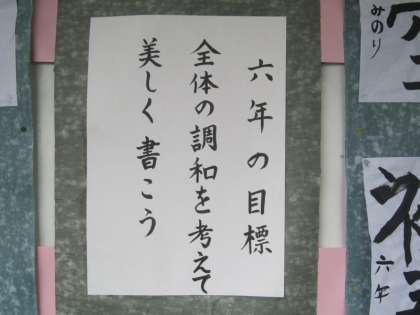 六年の目標
全体の調和を考えて
美しく書こう
みのり
六年